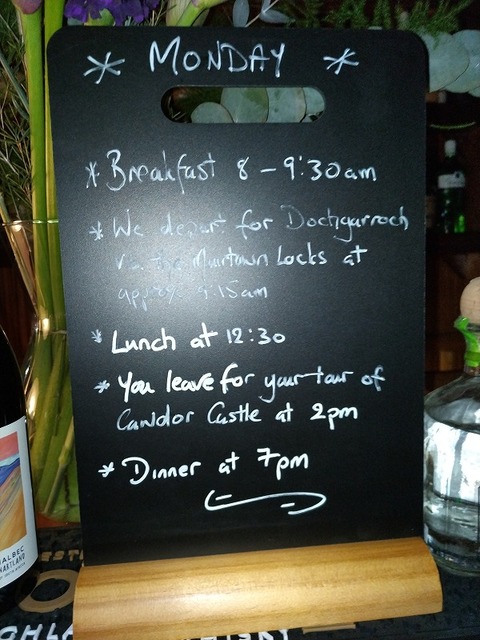 * MONDAY *
* Breakfast 8 - 9:30am
* We depart for Dochgarroch
via the Muirtown Locks at
approx 9:15am
* Lunch at 12:30
* You leave for your tour of
Cawdor Castle at 2pm
* Dinner at 7pm
MALBEC